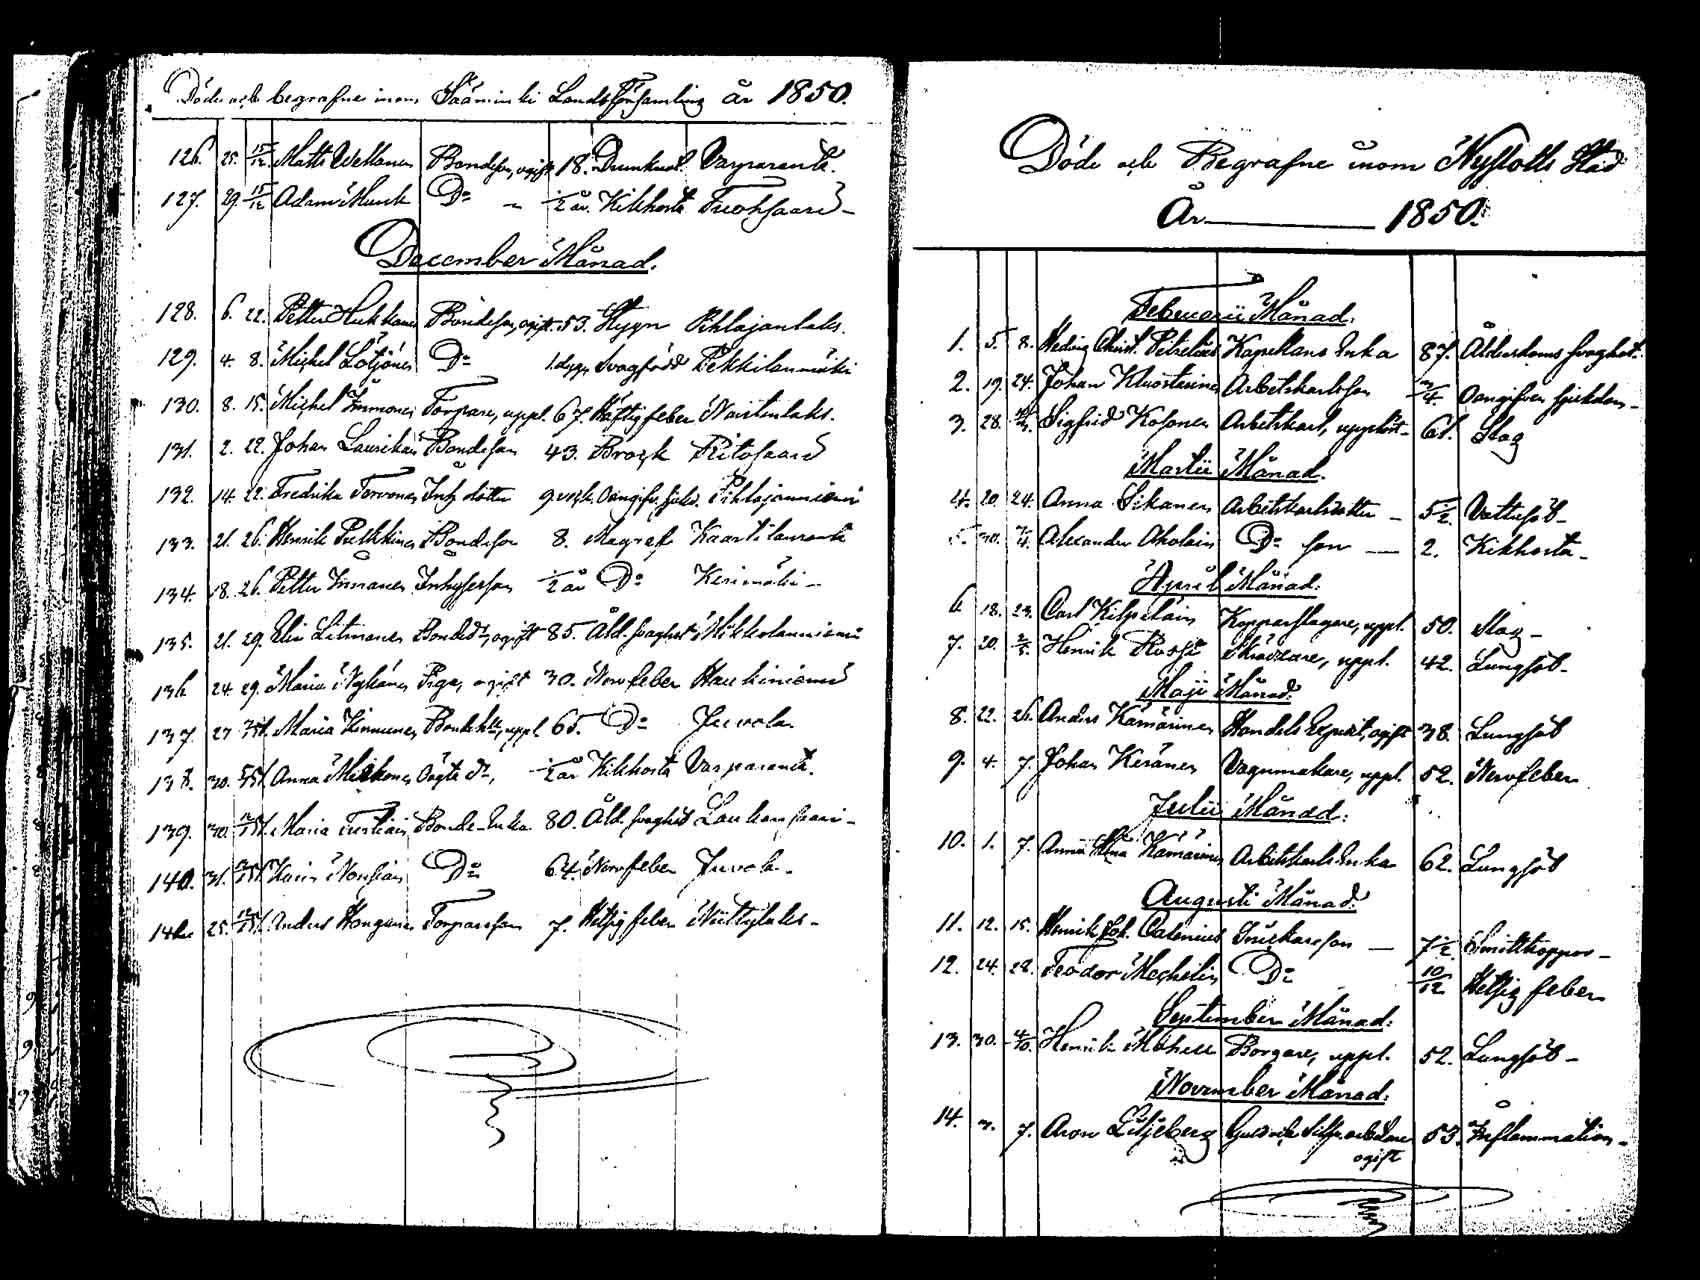 Döde och begrafne inom Sääminki Landsförsamling år 1850.
126. 25. 15/12 Matts Wellanen Bondeson, ogift 18. Drunknat Varparanta.
127. 29. 15/12 Adam Munck Do - 1/2 år. Kikhosta Tuohisaari -
December Månad.
128. 6. 22. Petter Hukkanen Bondeson, ogift. 53. Stygn Pihlajanlaks.
129. 4. 8. Michel Lötjönen Do 1. dygn Svagfödd Pekkilanmäki
130. 8. 15. Michel Immonen Torpare, uppl. 67. Häftig feber Naistenlaks.
131. 2. 22. Johan Laurikain Bondeson 43. Bråck Ritosaari
132. 14. 22. Fredrika Torvonen Inh. dotter 9 veck. Oangifv. sjukd. Pihlajaniemi
133. 21. 26. Henrik Pulkkinen Bondeson 8. Magref Kaartilanranta
134. 18. 26. Petter Immonen Inhyseson 1/2 år Do Kerimäki -
135. 21. 29. Elin Litmanen Bonded:r, ogift 85. Åld. svaghet Mikkolanniemi
136 24. 29. Maria Nykänen Piga, ogift 30. Nervfeber Haukiniemi
137. 27 Maria Kinnunen Bondehu, uppl. 65. Do Juvola.
138. 30. Anna Miekonen Oägta dr, 1/2 år Kikhosta Varparanta.
139. 30. Maria Turtiain Bonde-Enka 80. Åld. svaghet Laukansaari -
140. 31. Karin Nousiain Do 64. Nervfeber Juvola.
141. 25. Anders Hongane Torpareson 7. Hetsig feber Niittylaks -
Döde och Begrafne inom Nyslotts Stad
År 1850.
Februarii Månad.
1. 5. 8. Hedvig Christ. Petrelius Kapellans Enka 87. Ålderdoms svaghet.
2. 19. 24. Johan Kluostarinen Arbetskarlsson 3/4. Oangifven sjukdom -
3. 28. Sigfrid Kosonen Arbetskarl, uppl. 61. Slag
Martii Månad.
4. 20. 24. Anna Sikanen Arbetskarlsdotter - 5 1/2. Vattusot -
5. 30. 7/4. Alexander Aholain Do son - 2. Kikhosta -
April Månad.
6 18. 23. Carl Kilpeläin Kopparslagare, uppl. 50. Slag -
7. 20. 2/5. Henrik Russi Skräddare, uppl. 42. Lungsot -
Maji Månad.
8. 22. 26. Anders Kämäräinen Handels Expedit, ogift 38. Lungsot
9. 4. 7. Johan Keränen Vagnmakare, uppl. 52. Nervfeber
Julii Månad.
10. 1. 7. Anna Elina Kämäräinen Arbetskarls Enka 62. Lungsot
Augusti Månad.
11. 12. 15. Henrik Joh. Calenius Snickareson - 7 1/2. Smittkoppor -
12. 24. 28. Teodor Mechelin Do 10/12 Hetsig feber
September Månad.
13. 30. 4/10. Henrik Mähere Borgare, uppl. 52. Lungsot -
November Månad.
14. 3. 7. Aron Liljeberg Guld och Silfverarbetare 53. Inflammation -
ogift